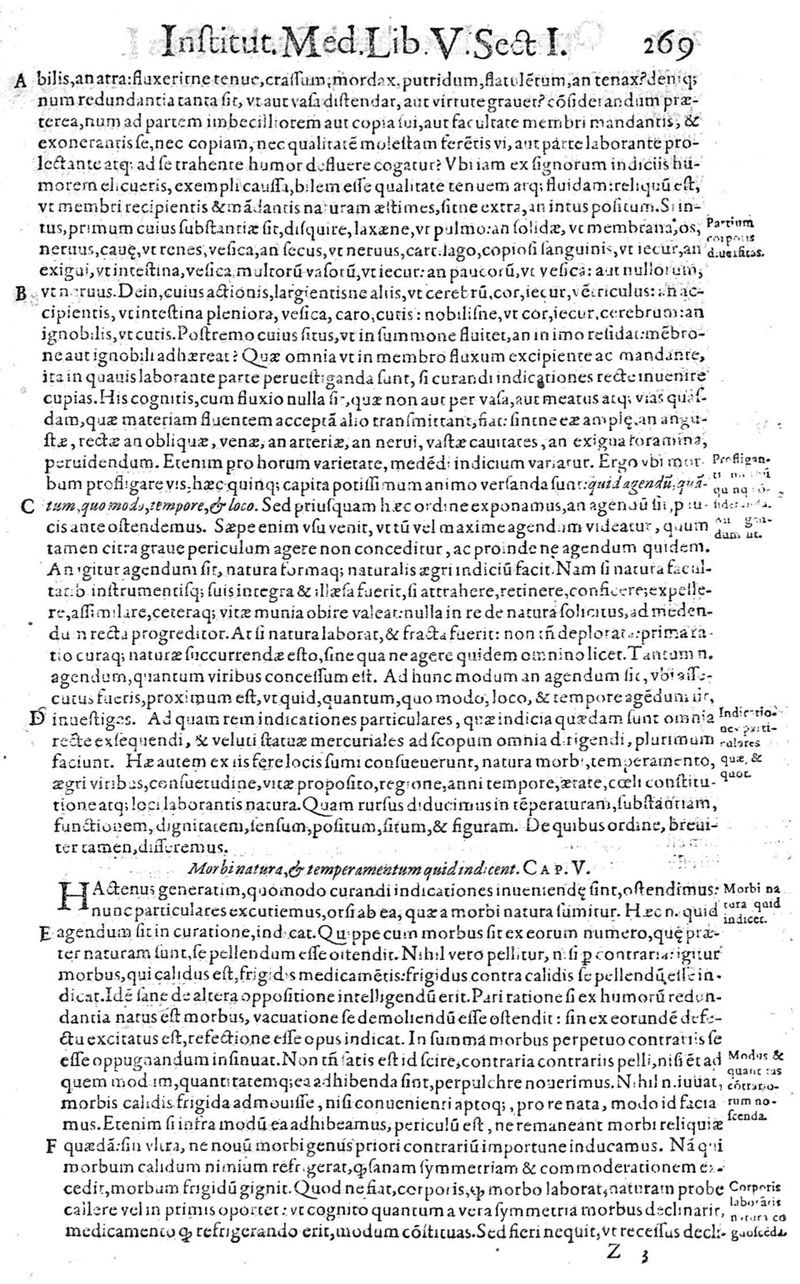 Institut. Med. Lib. V. Sect I. 269
A bilis, an atra: fluxeritne tenue, crassum; mordax, putridum, flatulẽtum, an tenax? deniq;
num redundantia tanta sit, vt aut vasa distendat, aut virtutẽ grauet? cõsiderandum præ-
terea, num ad partem imbecilliorem aut copia sui, aut facultate membri mandantis, &
exonerantis se, nec copiam, nec qualitatẽ molestam ferẽtis vi, aut parte laborante pro-
lectante atq; ad se trahente humor defluere cogatur? Vbi iam ex signorum indiciis hu-
morem elicueris, exempli caussa, bilem esse qualitate tenuem atq; fluidam: reliquũ est,
vt membri recipientis & mãdantis naturam æstimes, sitne extra, an intus positum. Si in-
tus, primum cuius substantiæ sit, disquire, laxæne, vt pulmo: an solidæ, vt membrana, os,
Partium corporis diuersitas.
neruus, cauę, vt renes, vesica, an secus, vt neruus, cartilago, copiosi sanguinis, vt iecur, an
exigui, vt intestina, vesica multorũ vasorũ, vt iecur: an paucorũ, vt vesica: aut nullorum,
B vt neruus. Dein, cuius actionis, largientisne aliis, vt cerebrũ, cor, iecur, vẽtriculus: an ac-
cipientis, vt intestina pleniora, vesica, caro, cutis: nobilisne, vt cor, iecur, cerebrum: an
ignobilis, vt cutis. Postremo cuius situs, vt in summone fluitet, an in imo resideat: mẽbro-
ne aut ignobili adhæreat? Quæ omnia vt in membro fluxum excipiente ac mandante,
ita in quauis laborante parte peruestiganda sunt, si curandi indicationes recte inuenire
cupias. His cognitis, cum fluxio nulla sit, quæ non aut per vasa, aut meatus atq; vias quas-
dam, quæ materiam fluentem acceptã alio transmittant, fiat: sintne eæ amplę, an angu-
stæ, rectæ an obliquæ, venæ, an arteriæ, an nerui, vastæ cauitates, an exigua foramina,
peruidendum. Etenim pro horum varietate, medẽdi indicium variatur. Ergo vbi mor-
bum profligare vis, hæc quinq; capita potissimum animo versanda sunt: quid agendũ, quã-
C tum, quo modo, tempore, & loco. Sed priusquam hæc ordine exponamus, an agendũ sit, pau-
cis ante ostendemus. Sæpe enim vsu venit, vt tũ vel maxime agendum videatur, quum
tamen citra graue periculum agere non conceditur, ac proinde ne agendum quidem.
An igitur agendum sit, natura formaq; naturalis ægri indiciũ facit. Nam si natura facul-
tatib instrumentisq; suis integra & illæsa fuerit, si attrahere, retinere, conficere, expelle-
re, assimilare, ceteraq; vitæ munia obire valeat: nulla in re de natura solicitus, ad meden-
dum recta progreditor. At si natura laborat, & fracta fuerit: non tñ deplorata: prima ra-
tio curaq; naturæ succurrendæ esto, sine qua ne agere quidem omnino licet. Tantum n.
agendum, quantum viribus concessum est. Ad hunc modum an agendum sit, vbi asse-
cutus fueris, proximum est, vt quid, quantum, quo modo, loco, & tempore agẽdum sit,
D inuestiges. Ad quam rem indicationes particulares, quæ indicia quædam sunt omnia
Indicationes particulares quæ, & quot.
recte exsequendi, & veluti statuæ mercuriales ad scopum omnia dirigendi, plurimum
faciunt. Hæ autem ex iis fere locis sumi consueuerunt, natura morbi, temperamento,
ægri viribus, consuetudine, vitæ proposito, regione, anni tempore, ætate, cœli constitu-
tione atq; loci laborantis natura. Quam rursus diducimus in tẽperaturam, substantiam,
functionem, dignitatem, sensum, positum, situm, & figuram. De quibus ordine, breui-
ter tamen, disseremus.
Morbi natura, & temperamentum quid indicent. CAP. V.
HActenus generatim, quomodo curandi indicationes inueniendę sint, ostendimus:
Morbi natura quid indicet.
nunc particulares excutiemus, orsi ab ea, quæ a morbi natura sumitur. Hæc n. quid
E agendum sit in curatione, indicat. Quippe cum morbus sit ex eorum numero, quę præ-
ter naturam sunt, se pellendum esse ostendit. Nihil vero pellitur, nisi ꝑ contraria: igitur
morbus, qui calidus est, frigidis medicamẽtis: frigidus contra calidis se pellendũ esse in-
dicat. Idẽ sane de altera oppositione intelligendũ erit. Pari ratione si ex humorũ redun-
dantia natus est morbus, vacuatione se demoliendũ esse ostendit: sin ex eorundẽ defe-
ctu excitatus est, refectione esse opus indicat. In summa morbus perpetuo contrariis se
esse oppugnandum insinuat. Non tñ satis est id scire, contraria contrariis pelli, nisi et ad
Modus & quantitas cõtrariorum noscenda.
quem modum, quantitatemq; ea adhibenda sint, perpulchre nouerimus. Nihil n. iuuat,
morbis calidis frigida admouisse, nisi conuenienti aptoq;, pro re nata, modo id facia
mus. Etenim si infra modũ ea adhibeamus, periculũ est, ne remaneant morbi reliquiæ
F quædã: sin vltra, ne nouũ morbi genus priori contrariũ importune inducamus. Nã qui
morbum calidum nimium refrigerat, ꝙ sanam symmetriam & commoderationem ex-
cedit, morbum frigidũ gignit. Quod ne fiat, corporis, ꝙ morbo laborat, naturam probe
Corporis laborãtis natura cognoscẽda.
callere vel in primis oportet: vt cognito quantum a vera symmetria morbus declinarit,
medicamento ꝙ refrigerando erit, modum cõstituas. Sed fieri nequit, vt recessus decli-
Z 3